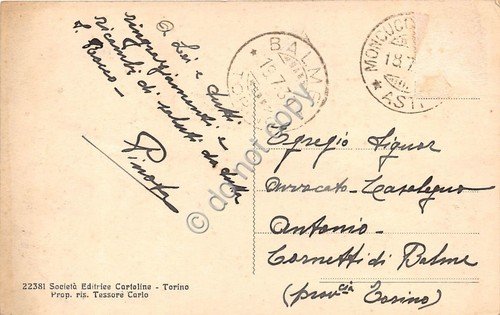 A Lei e tutti
ringraziamenti e
ricambi di saluti da tutta
S. Bocco -
BALME
19.7.3
MONCUCCO
18.7
ASTI
Egregio Signor
Avvocato - Casalegno
Antonio -
Cornetti di Balme
(provcia Torino)
22381 Società Editrice Cartoline - Torino
Prop. ris. Tessore Carlo
© do not copy